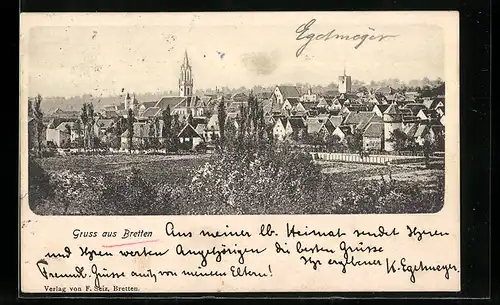 Egetmeyer
Gruss aus Bretten
Aus meiner lb. Heimat sendet Ihnen
und Ihren werten Angehörigen die besten Grüsse
Ihr ergebener K. Egetmeyer.
Freundl. Grüsse auch von meinen Eltern!
Verlag von F. Seiz, Bretten.